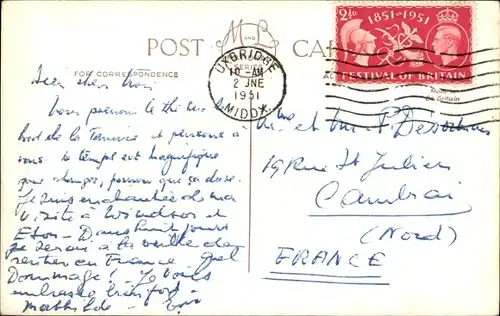 M AND B
SERIES
POST CARD
FOR CORRESPONDENCE
UXBRIDGE
10 - AM
2 JNE
1951
MIDDX
2½D
1851-1951
FESTIVAL OF BRITAIN
Bien chers trois
Nous prenons le thé au
bord de la Tamise et pensons à
vous. Le temps est magnifique
pour changer, pourvu que ça dure.
Je suis enchantée de ma
visite à Windsor et
Eton - Dans huit jours
je serai à la veille de
rentrer en France quel
Dommage! Je vous
embrasse bien fort
Mathilde -
Mme et Mr
19 Rue St Julien
Cambrai
(Nord)
FRANCE